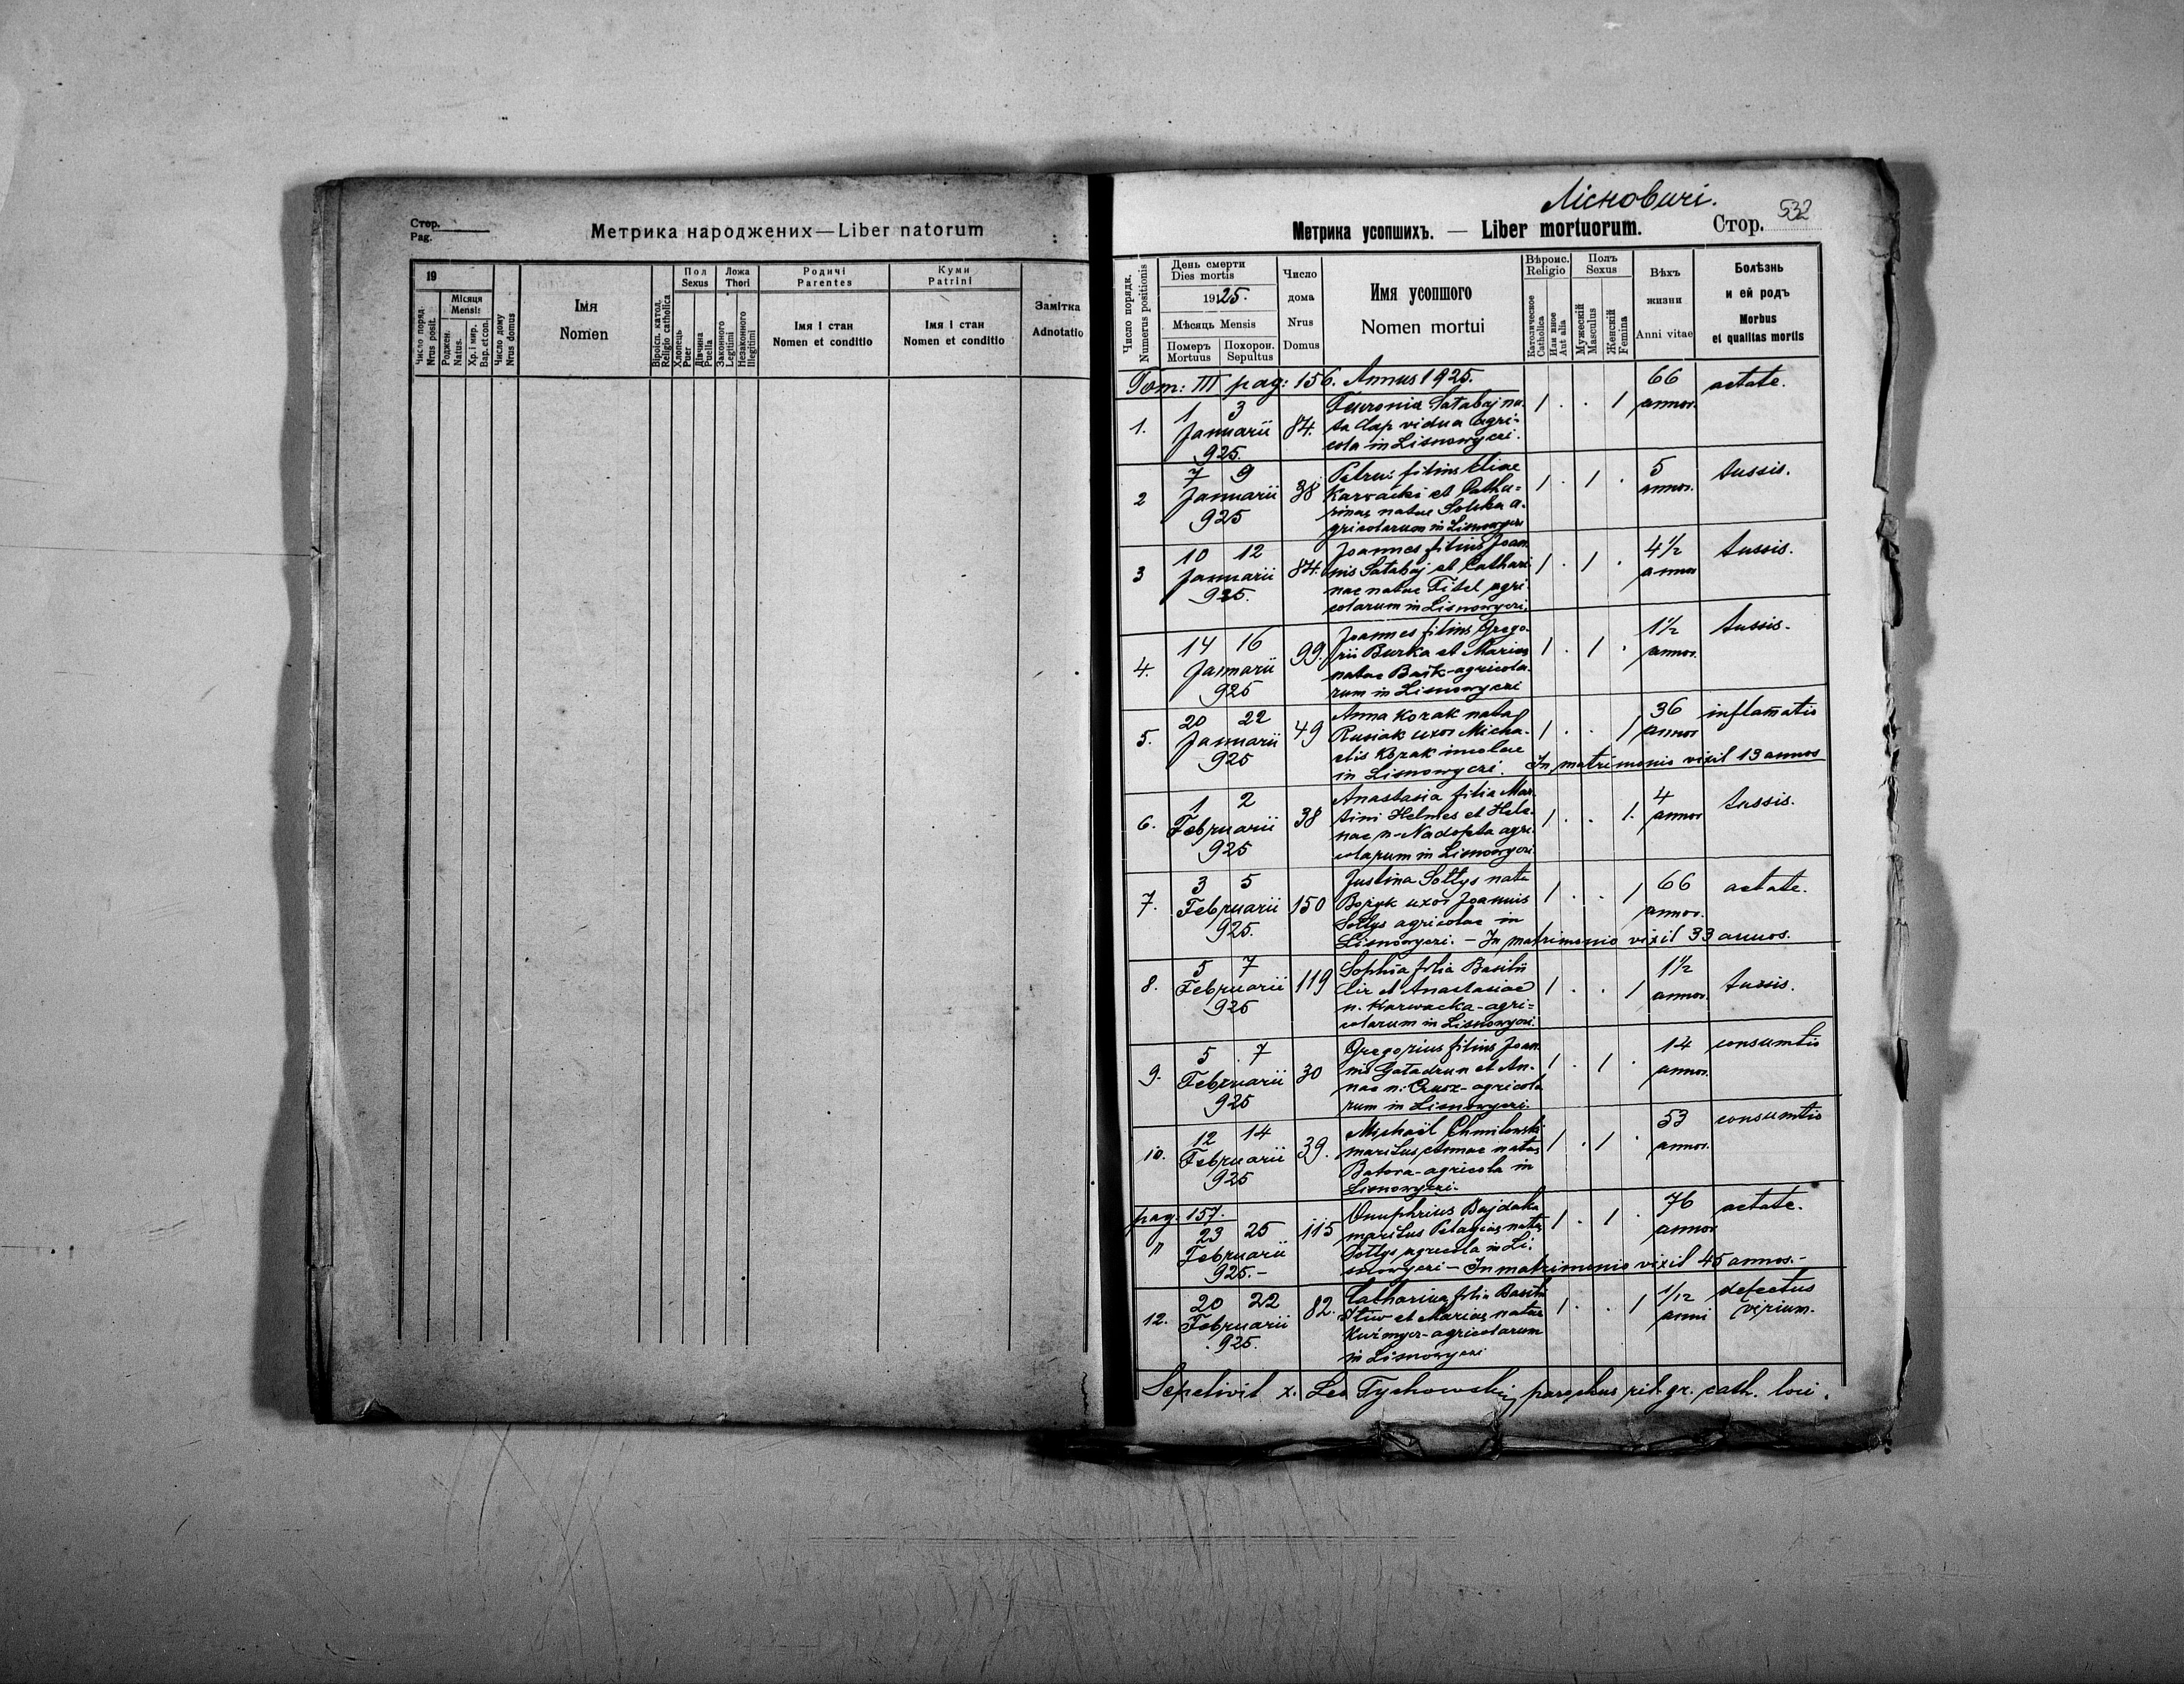 Стор.
Pag.
Метрика народжених—Liber natorum
19
Число поряд.
Nrus posit.
Місяця
Mensis
Роджен.
Natus.
Хр. і мир.
Bap. et con.
Число дому
Nrus domus
Імя
Nomen
Віроісп. катол.
Religio catholica
Пол
Sexus
Хлопець
Puer
Дівчина
Puella
Ложа
Thori
Законного
Legitimi
Незаконного
Illegitimi
Родичі
Parentes
Імя і стан
Nomen et conditio
Куми
Patrini
Імя і стан
Nomen et conditio
Замітка
Adnotatio
Лісновичі.
532
Метрика усопшихъ. — Liber mortuorum. Стор.
Число порядк.
Numerus positionis
День смерти
Dies mortis
1925.
Мѣсяць Mensis
Померъ
Mortuus
Похорон.
Sepultus
Число
дома
Nrus
Domus
Имя усопшого
Nomen mortui
Вѣроис.
Religio
Католическое
Catholica
Или иное
Aut alia
Полъ
Sexus
Мужескій
Masculus
Женскій
Femina
Вѣхъ
жизни
Anni vitae
Болѣзнь
и ей родъ
Morbus
et qualitas mortis
Tom: III pag: 156. Annus 1925.
1. 1 3 Januarii 925. 84.
Fevronia Satabaj na-
ta Cap vidua agri-
cola in Lisnowyczi.
1 . . 1 66 annos. aetate.
2 7 9 Januarii 925 38
Petrus filius Eliae
Karwacki et Catha-
rinae natae Solska a-
gricolarum in Lisnowyczi
1 . 1 . 5 annos. tussis.
3 10 12 Januarii 925. 84.
Joannes filius Joan
nis Satabaj et Cathari
nae natae Fitel agri
colarum in Lisnowyczi,
1 . 1 . 4½ annos tussis.
4. 14 16 Januarii 925 99.
Joannes filius Grego-
rii Burka et Mariae
natae Baśk-agricola-
rum in Lisnowyczi
1 . 1 . 1½ annos. tussis.
5. 20 22 Januarii 925 49
Anna Kozak nata
Rusiak uxor Micha-
elis Kozak incolae
in Lisnowyczi. In matrimonio vixit 13 annos
1 . . 1 36 annos inflamatio
6. 1 2 Februarii 925 38
Anastasia filia Mar-
tini Helmes et Hele-
nae n-Nadopta agri-
colarum in Lisnowyczi
1 . . 1. 4 annos tussis.
7. 3 5 Februarii 925. 150
Justina Sołtys nata
Bojyk uxor Joannis
Sołtys agricolae in
Lisnowyczi. - In matrimonio vixit 33 annos.
1 . . 1 66 annos. aetate.
8. 5 7 Februarii 925 119
Sophia filia Basilii
Cir et Anastasiae
n. Karwacka-agri=
colarum in Lisnowyczi.
1 . . 1 1½ annos. tussis.
9. 5 7 Februarii 925 30
Gregorius filius Joan
nis Gaładrun et An-
nae n: -agricola
rum in Lisnowyczi.
1 . 1 . 14 annos. consumtio
10. 12 14 Februarii 925 39.
Michaël Chmilowski
maritus Annae natae
Batora-agricola in
Lisnowyczi-
1 . 1 . 53 annos. consumtio
pag: 157.
11 23 25 Februarii 925.- 115
Onuphrius Bajdala
maritus Pelagiae natae
Sołtys agricola in Li-
snowyczi - In matrimonio vixit 45 annos.-
1 . 1 . 76 annos aetate.
12. 20 22 Februarii 925. 82.
Catharina filia Basilii
et Mariae natae
Kuźmycz-agricolarum
in Lisnowyczi
1 . . 1 1/12 anni defectus virium.
Sepelivit x. Leo Tychowskij parochus rit. gr. cath. loci.